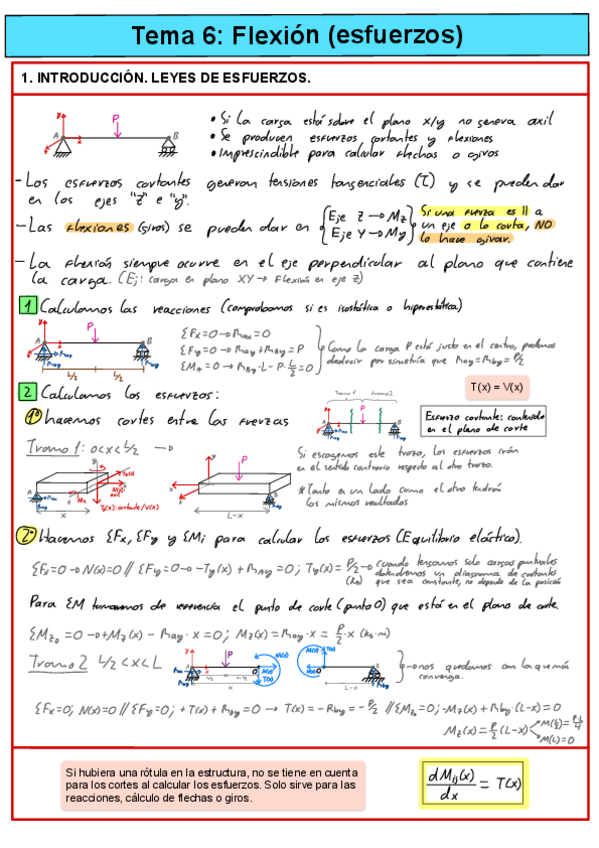 Tema 6: Flexión (esfuerzos)
1. INTRODUCCIÓN. LEYES DE ESFUERZOS.
• Si la carga está sobre el plano x/y no genera axil
• Se producen esfuerzos cortantes y flexiones
• Imprescindible para calcular flechas o giros
- Los esfuerzos cortantes generan tensiones tangenciales (τ) y se pueden dar
en los ejes "z" e "y".
- Las flexiones (giros) se pueden dar en { Eje Z → Mz
Eje Y → My
Si una fuerza es || a
un eje o lo corta, NO
lo hace girar.
- La flexión siempre ocurre en el eje perpendicular al plano que contiene
la carga. (Ej: carga en plano XY → Flexión en eje z)
1 Calculamos las reacciones (comprobamos si es isostática o hiperestática)
ΣFx=0 → Rax=0
ΣFy=0 → Ray+Rby=P
ΣMA=0 → Rby·L-P·L/2=0
Como la carga P está justo en el centro, podemos
deducir por simetría que Ray=Rby=P/2
2 Calculamos los esfuerzos:
T(x) = V(x)
1º hacemos cortes entre las fuerzas
Tramo 1 Tramo 2
Esfuerzo cortante: contenido
en el plano de corte
Tramo 1: 0<x<L/2 →
Si escogemos este trozo, los esfuerzos irán
en el sentido contrario respecto al otro trozo.
* Tanto en un lado como el otro tendrán
los mismos resultados
x
L-x
2º Hacemos ΣFx, ΣFy y ΣMi para calcular los esfuerzos (Equilibrio elástico).
ΣFx=0 → N(x)=0 // ΣFy=0 → -Ty(x)+RAy=0; Ty(x)=P/2 → cuando tengamos solo cargas puntuales
(kg) obtendremos un diagrama de cortantes
que sea constante, no depende de la posición
Para ΣM tomamos de referencia el punto de corte (punto O) que está en el plano de corte.
ΣMz0 = 0 → +Mz(x) - Ray·x = 0; Mz(x) = Ray·x = P/2·x (kg·m)
Tramo 2 L/2<x<L
nos quedamos con la que más
convenga.
ΣFx=0; N(x)=0 // ΣFy=0; +T(x)+Rby=0 → T(x)=-Rby=-P/2 // ΣMz0=0; -Mz(x)+Rby·(L-x)=0
Mz(x)=P/2(L-x) M(L/2)=P·L/4
M(L)=0
Si hubiera una rótula en la estructura, no se tiene en cuenta
para los cortes al calcular los esfuerzos. Solo sirve para las
reacciones, cálculo de flechas o giros.
dMij(x)/dx = T(x)